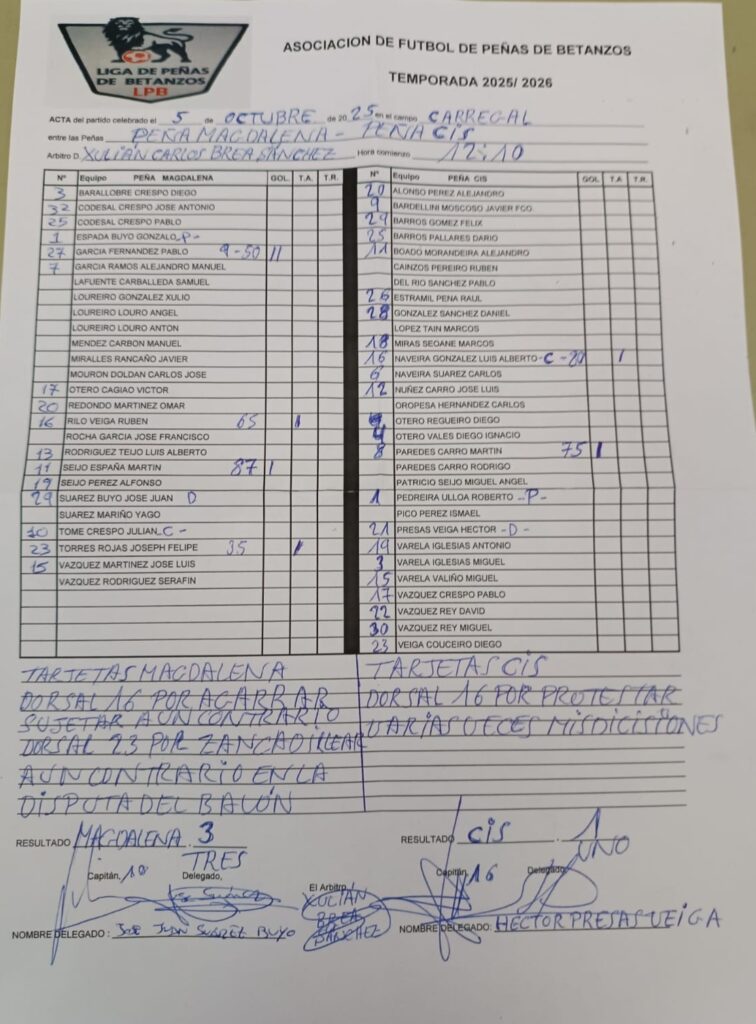 LIGA DE PEÑAS
DE BETANZOS
LPB
ASOCIACION DE FUTBOL DE PEÑAS DE BETANZOS
TEMPORADA 2025/ 2026
ACTA del partido celebrado el 5 de OCTUBRE de 2025 en el campo CARREGAL
entre las Peñas PEÑA MAGDALENA - PEÑA CIS
Arbitro D. XULIÁN CARLOS BREA SÁNCHEZ Hora comienzo 12:10
Nº Equipo PEÑA MAGDALENA GOL. T.A. T.R.
3 BARALLOBRE CRESPO DIEGO
32 CODESAL CRESPO JOSE ANTONIO
25 CODESAL CRESPO PABLO
1 ESPADA BUYO GONZALO -P-
27 GARCIA FERNANDEZ PABLO 9-50 II
7 GARCIA RAMOS ALEJANDRO MANUEL
LAFUENTE CARBALLEDA SAMUEL
LOUREIRO GONZALEZ XULIO
LOUREIRO LOURO ANGEL
LOUREIRO LOURO ANTON
MENDEZ CARBON MANUEL
MIRALLES RANCAÑO JAVIER
MOURON DOLDAN CARLOS JOSE
17 OTERO CAGIAO VICTOR
20 REDONDO MARTINEZ OMAR
16 RILO VEIGA RUBEN 65 I
ROCHA GARCIA JOSE FRANCISCO
13 RODRIGUEZ TEIJO LUIS ALBERTO
11 SEIJO ESPAÑA MARTIN 87 I
19 SEIJO PEREZ ALFONSO
29 SUAREZ BUYO JOSE JUAN D
SUAREZ MARIÑO YAGO
10 TOME CRESPO JULIAN C -
23 TORRES ROJAS JOSEPH FELIPE 35 I
15 VAZQUEZ MARTINEZ JOSE LUIS
VAZQUEZ RODRIGUEZ SERAFIN
Nº Equipo PEÑA CIS GOL. T.A. T.R.
20 ALONSO PEREZ ALEJANDRO
9 BARDELLINI MOSCOSO JAVIER FCO.
29 BARROS GOMEZ FELIX
25 BARROS PALLARES DARIO
11 BOADO MORANDEIRA ALEJANDRO
CAINZOS PEREIRO RUBEN
DEL RIO SANCHEZ PABLO
26 ESTRAMIL PENA RAUL
28 GONZALEZ SANCHEZ DANIEL
LOPEZ TAIN MARCOS
18 MIRAS SEOANE MARCOS
16 NAVEIRA GONZALEZ LUIS ALBERTO - C - 20 I
6 NAVEIRA SUAREZ CARLOS
12 NUÑEZ CARRO JOSE LUIS
OROPESA HERNANDEZ CARLOS
OTERO REGUEIRO DIEGO
4 OTERO VALES DIEGO IGNACIO
8 PAREDES CARRO MARTIN 75 I
PAREDES CARRO RODRIGO
PATRICIO SEIJO MIGUEL ANGEL
1 PEDREIRA ULLOA ROBERTO -P-
PICO PEREZ ISMAEL
21 PRESAS VEIGA HECTOR -D-
19 VARELA IGLESIAS ANTONIO
3 VARELA IGLESIAS MIGUEL
15 VARELA VALIÑO MIGUEL
17 VAZQUEZ CRESPO PABLO
22 VAZQUEZ REY DAVID
30 VAZQUEZ REY MIGUEL
23 VEIGA COUCEIRO DIEGO
TARJETAS MAGDALENA
DORSAL 16 POR AGARRAR
SUJETAR A UN CONTRARIO
DORSAL 23 POR ZANCADILLEAR
A UN CONTRARIO EN LA
DISPUTA DEL BALÓN
TARJETAS CIS
DORSAL 16 POR PROTESTAR
VARIAS VECES MIS DICISIONES
RESULTADO MAGDALENA 3
TRES
RESULTADO CIS 1
UNO
Capitán, 10 Delegado,
El Arbitro
XULIÁN
BREA
SÁNCHEZ
Capitán, 16 Delegado
NOMBRE DELEGADO : JOSE JUAN SUAREZ BUYO
NOMBRE DELEGADO: HÉCTOR PRESAS VEIGA